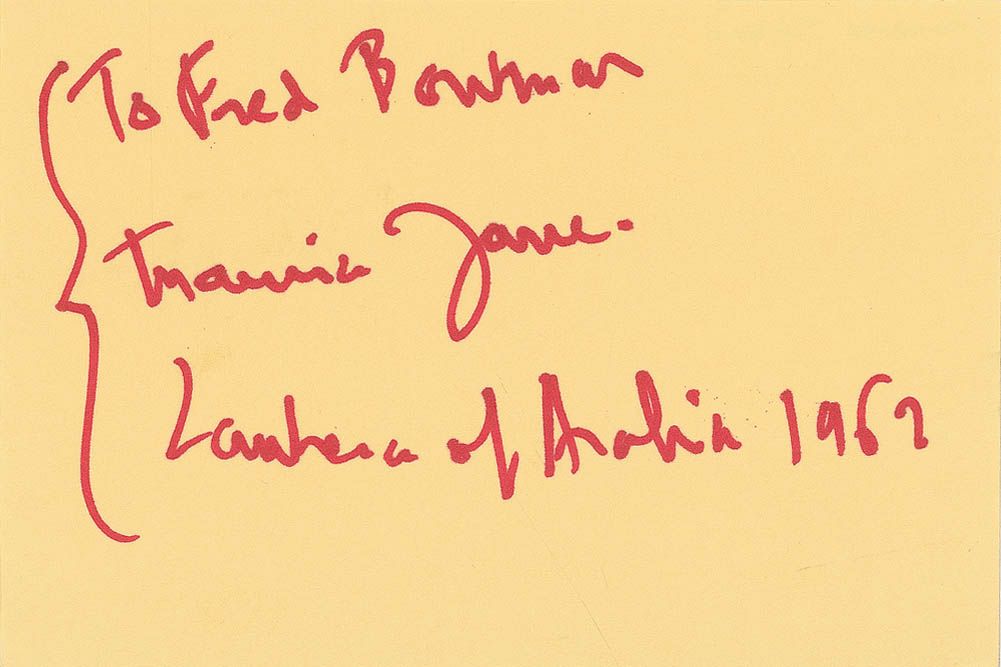 To Fred Bowman
Maurice Jarre.
Lawrence of Arabia 1962